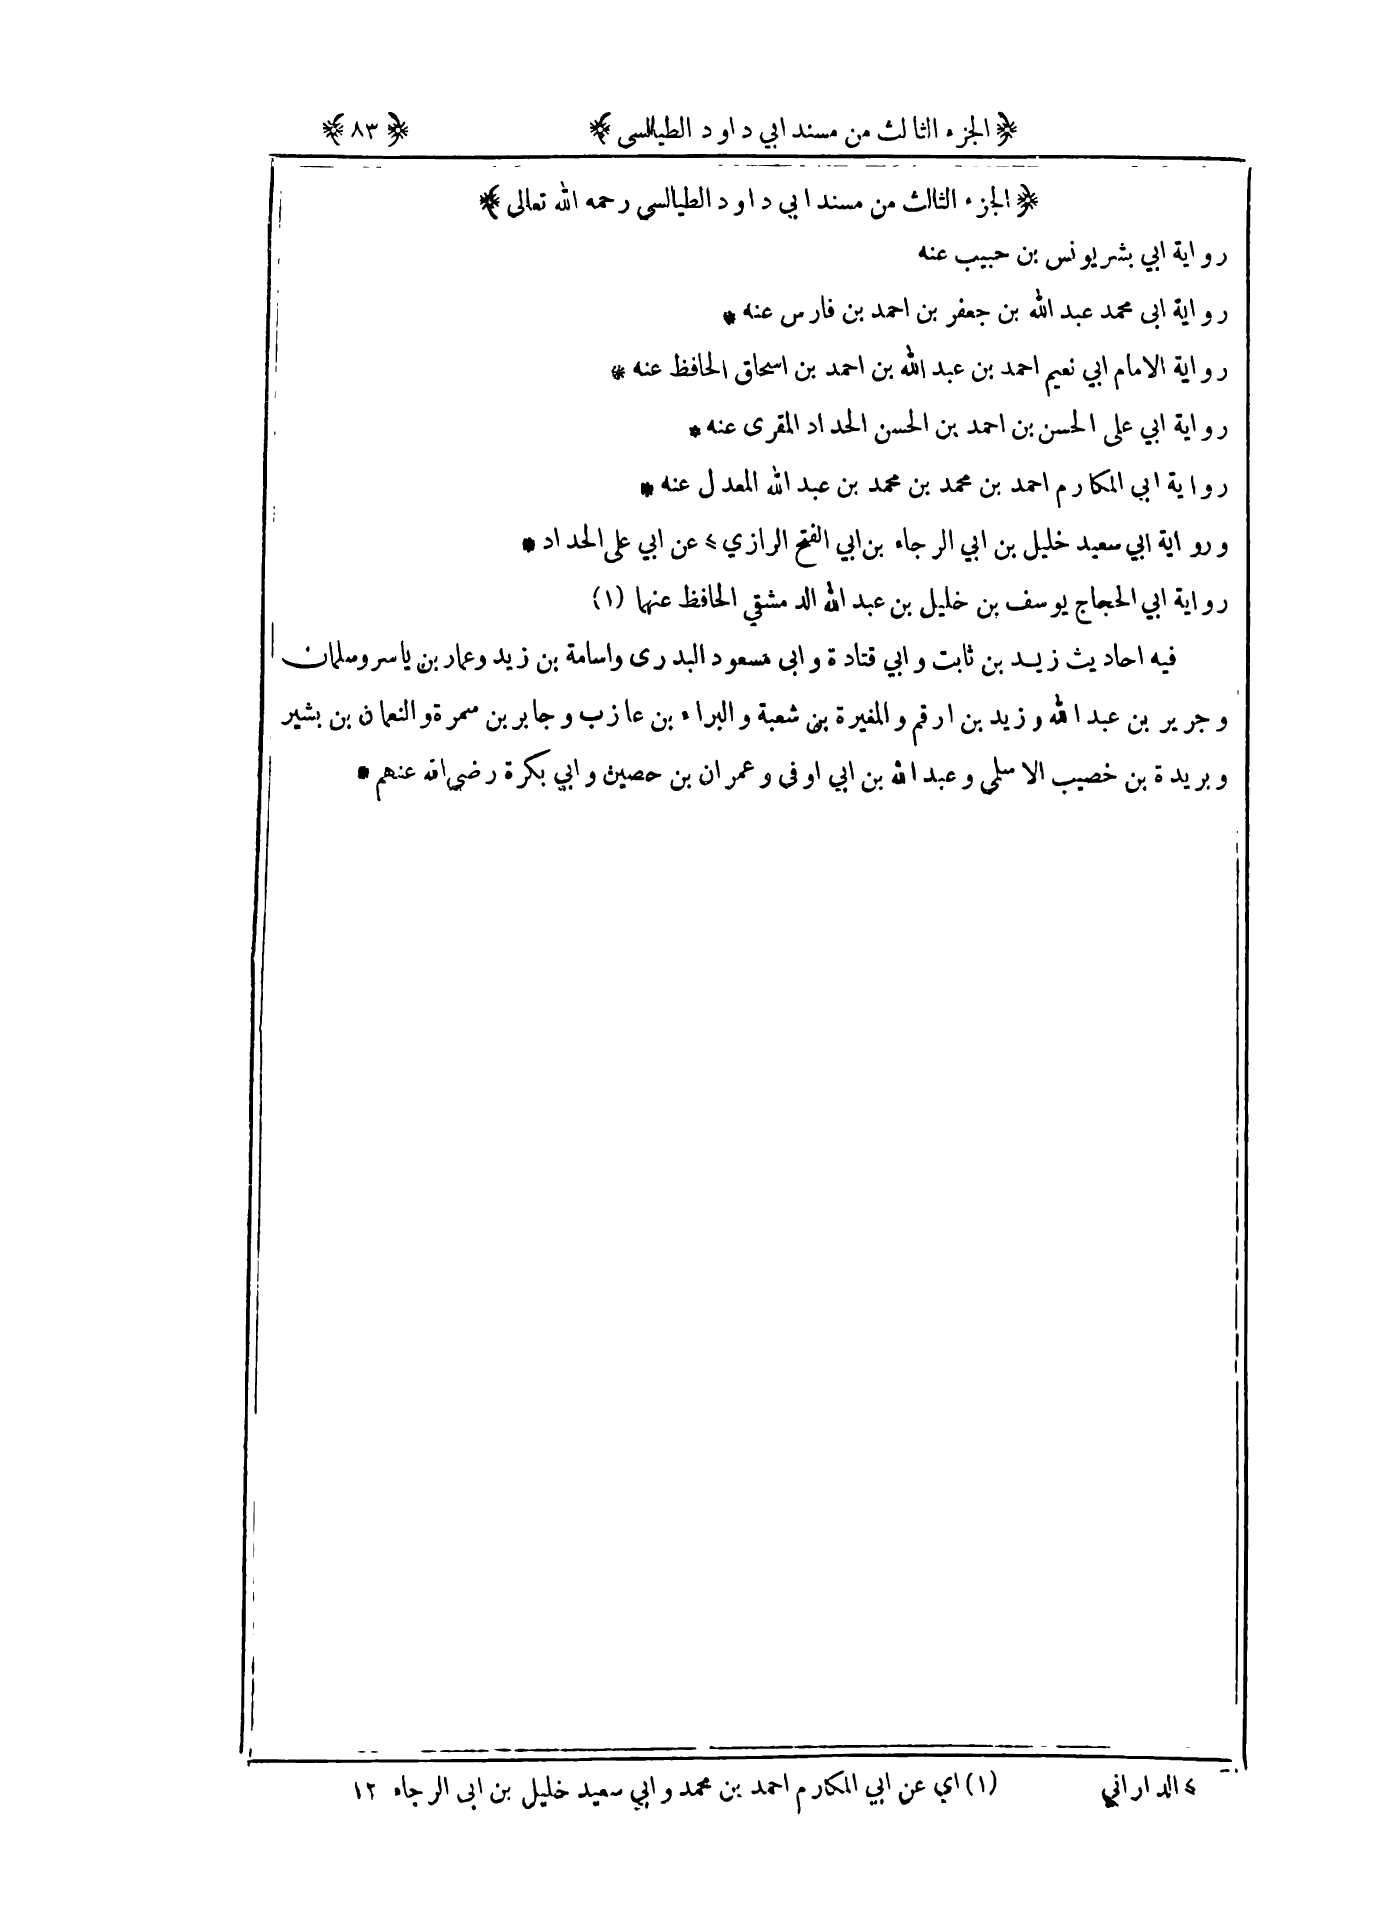 ﴿ الجزء الثالث من مسند ابي داود الطيالسى ﴾ ﴿ ٨٣ ﴾
﴿ الجزء الثالث من مسند ابي داود الطيالسي رحمه الله تعالى ﴾
رواية ابي بشر يونس بن حبيب عنه
رواية ابى محمد عبد الله بن جعفر بن احمد بن فارس عنه *
رواية الامام ابي نعيم احمد بن عبد الله بن احمد بن اسحاق الحافظ عنه *
رواية ابي على الحسن بن احمد بن الحسن الحداد المقرى عنه *
رواية ابي المكارم احمد بن محمد بن محمد بن عبد الله المعدل عنه *
ورواية ابي سعيد خليل بن ابي الرجاء بن ابي الفتح الرازي ⪕ عن ابي على الحداد *
رواية ابي الحجاج يوسف بن خليل بن عبد الله الدمشقي الحافظ عنهما (١)
فيه احاديث زيد بن ثابت وابي قتادة وابى مسعود البدرى واسامة بن زيد وعمار بن ياسر وسلمان
وجرير بن عبد الله وزيد بن ارقم والمغيرة بن شعبة والبراء بن عازب وجابر بن سمرة والنعمان بن بشير
وبريدة بن خصيب الاسلمى وعبد الله بن ابي اوفى وعمران بن حصين وابي بكرة رضي الله عنهم *
⪕ الداراني (١) اي عن ابي المكارم احمد بن محمد وابي سعيد خليل بن ابى الرجاء ١٢